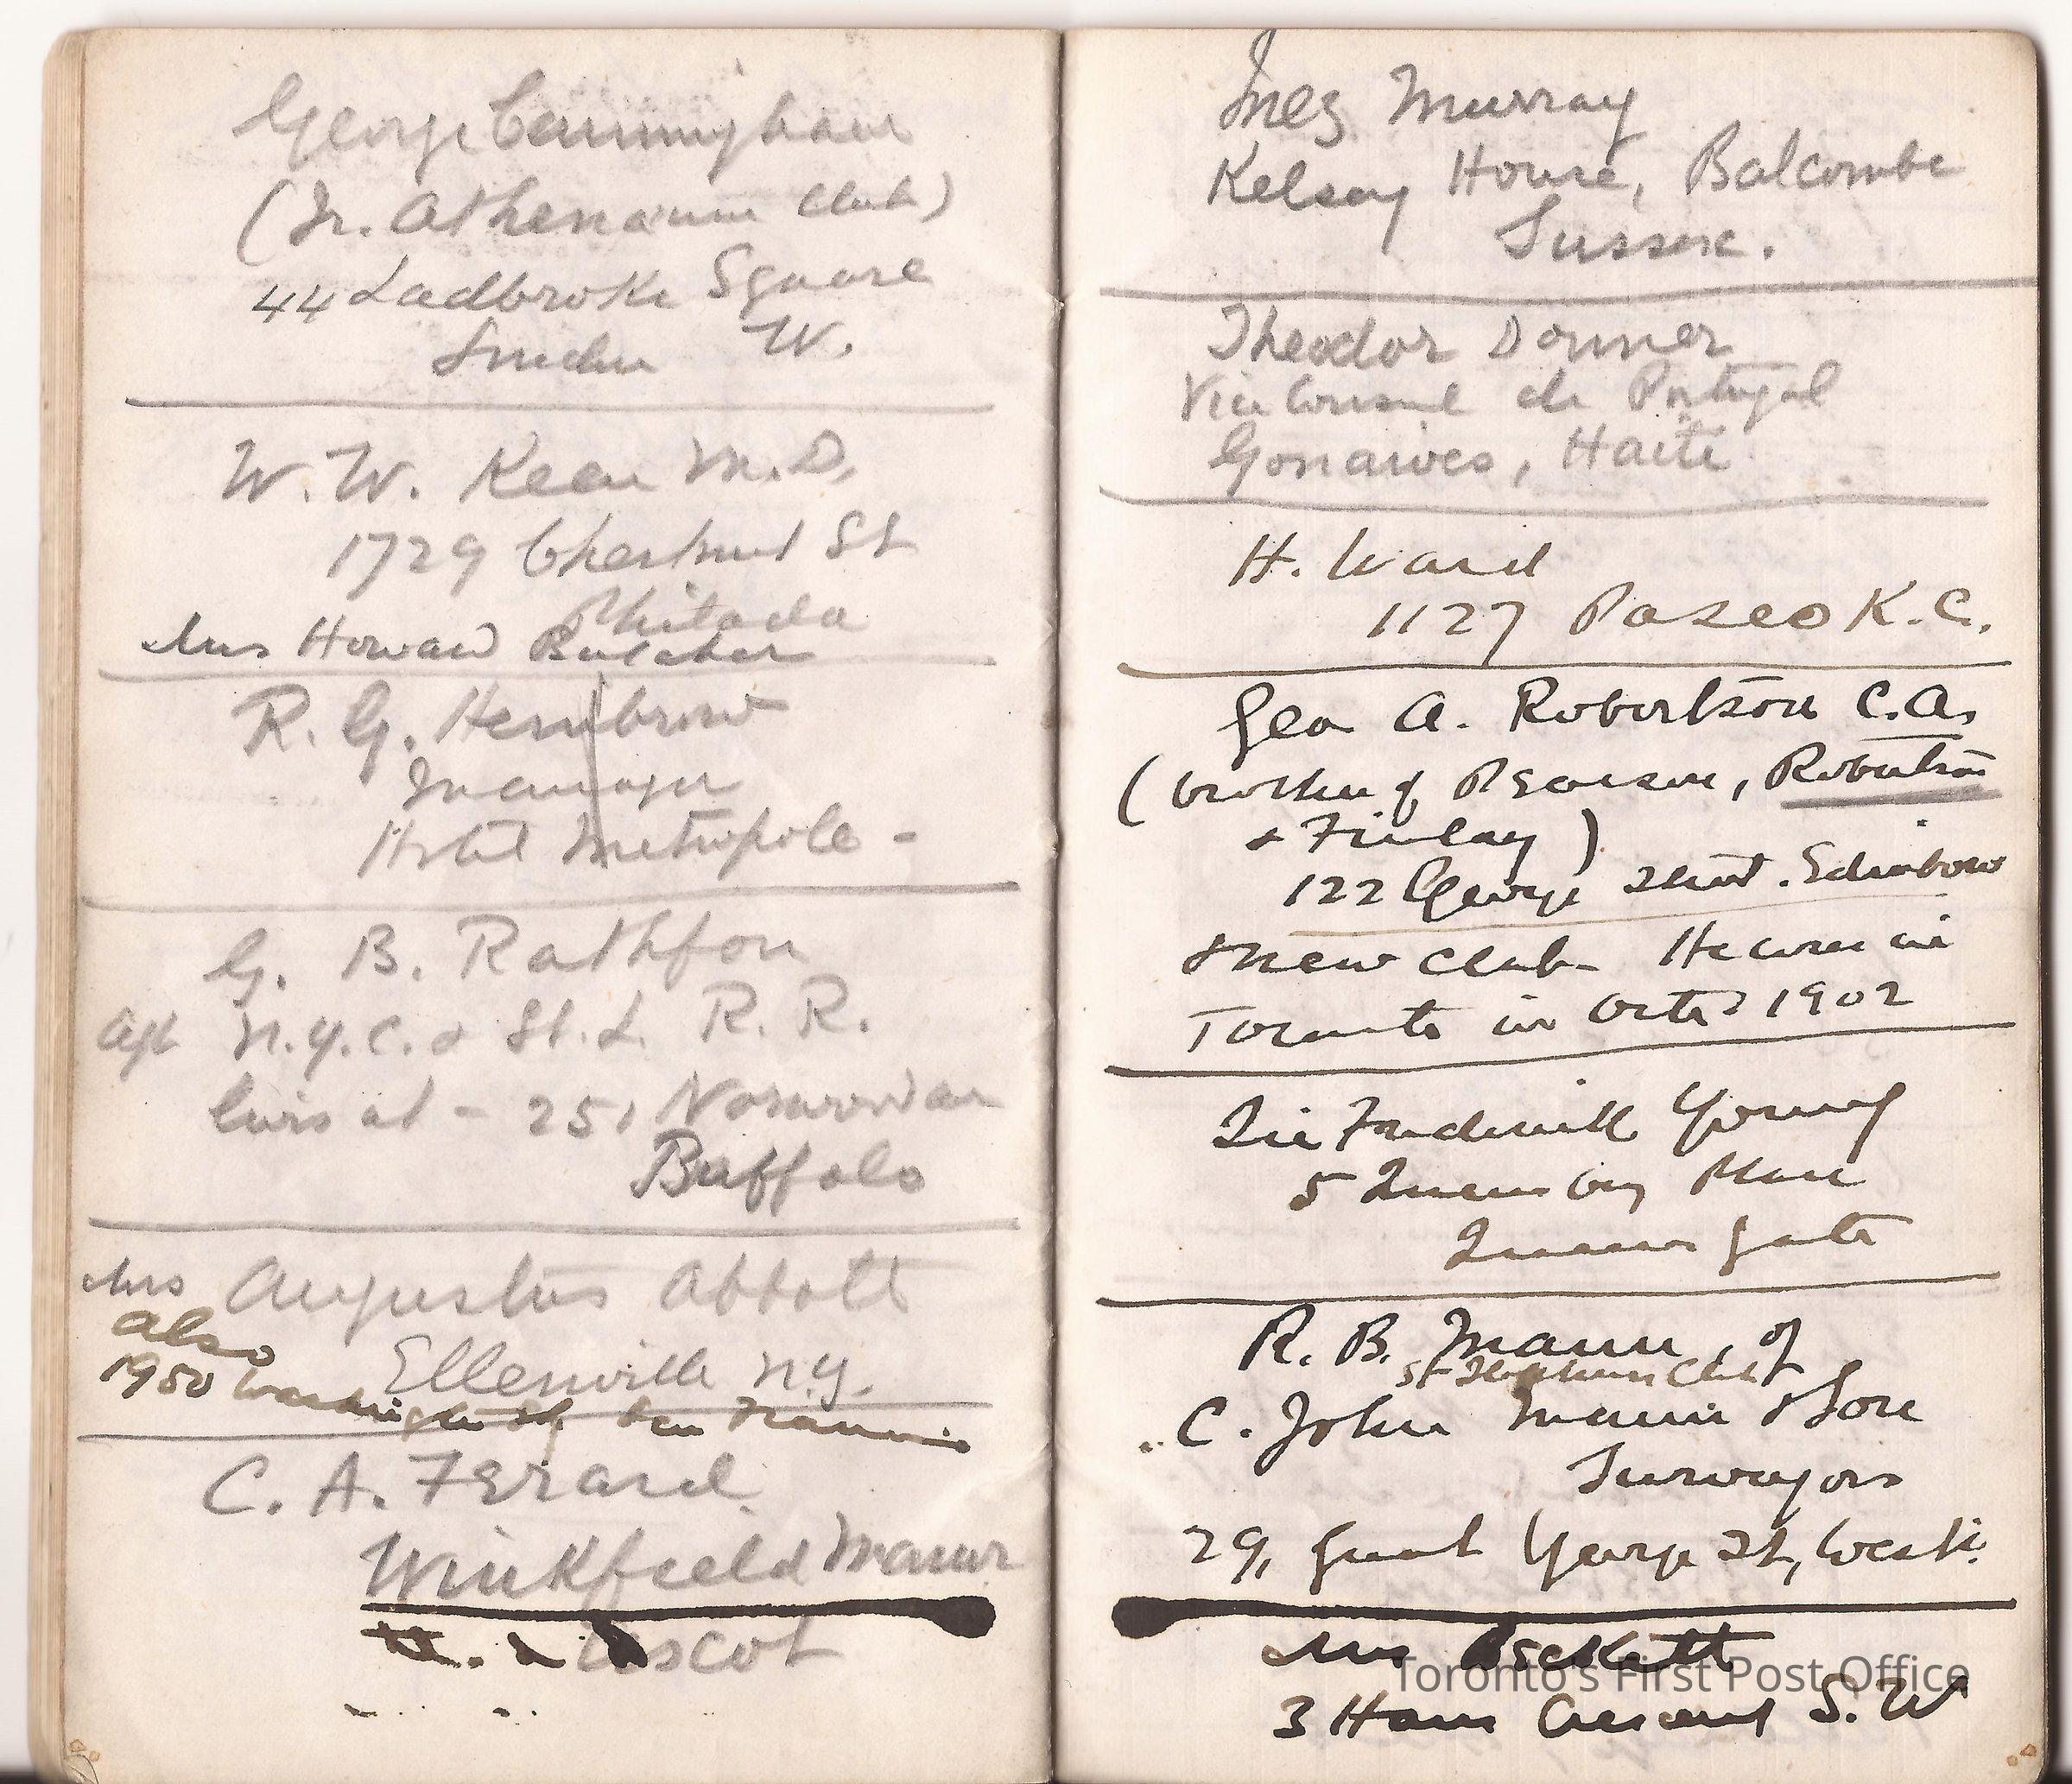 George Cunningham
(Jr. Athenaeum Club)
44 Ladbroke Square
London W.
W. W. Keen M.D.
1729 Chestnut St
Philada
Mrs Howard Butcher
R. G. Hembrow
Manager
Hotel Metropole -
G. B. Rathfon
Agt N.Y.C. & St. L. R. R.
lives at - 251 Norwood Av
Buffalo
Mrs Augustus Abbott
also
Ellenville N.Y.
1950 Washington St San Francisco
C. A. Ferard
Winkfield Manor
Ascot
Inez Murray
Kelsey House, Balcombe
Sussex.
Theodor Donner
Vice Consul de Portugal
Gonaives, Haiti
H. Ward
1127 Paseo K.C.
Geo A. Robertson C.A.
(brother of Pearson, Robertson
& Finlay)
122 George Street. Edinboro
& New Club - He was in
Toronto in Octr 1902
Sir Frederick Young
5 Queensbury Place
Queens Gate
R. B. Mann, of
St Stephens Club
C. John Mann & Son
Surveyors
29, Great George St, West.
Mrs Beckett
3 Hans Crescent S.W
Toronto's First Post Office